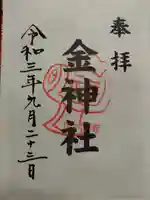 奉拝
金神社
令和三年九月二十三日